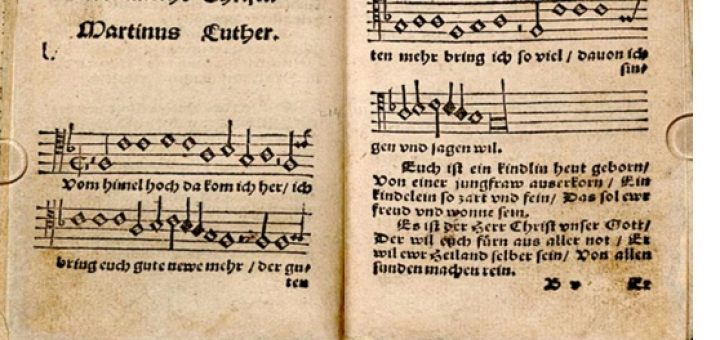 Martinus Luther.
l.
Vom himel hoch da kom ich her/ ich
bring euch gute newe mehr / der gu⸗
ten
ten mehr bring ich so viel / dauon ich
sin⸗
gen vnd sagen wil.
Euch ist ein kindlin heut geborn/
Von einer jungfraw auserkorn / Ein
kindelein so zart vnd fein/ Das sol ewr
freud vnd wonne sein.
Es ist der Herr Christ vnser Gott/
Der wil euch fürn aus aller not / Er
wil ewr Heiland selber sein/ Von allen
sunden machen rein.
B v Er